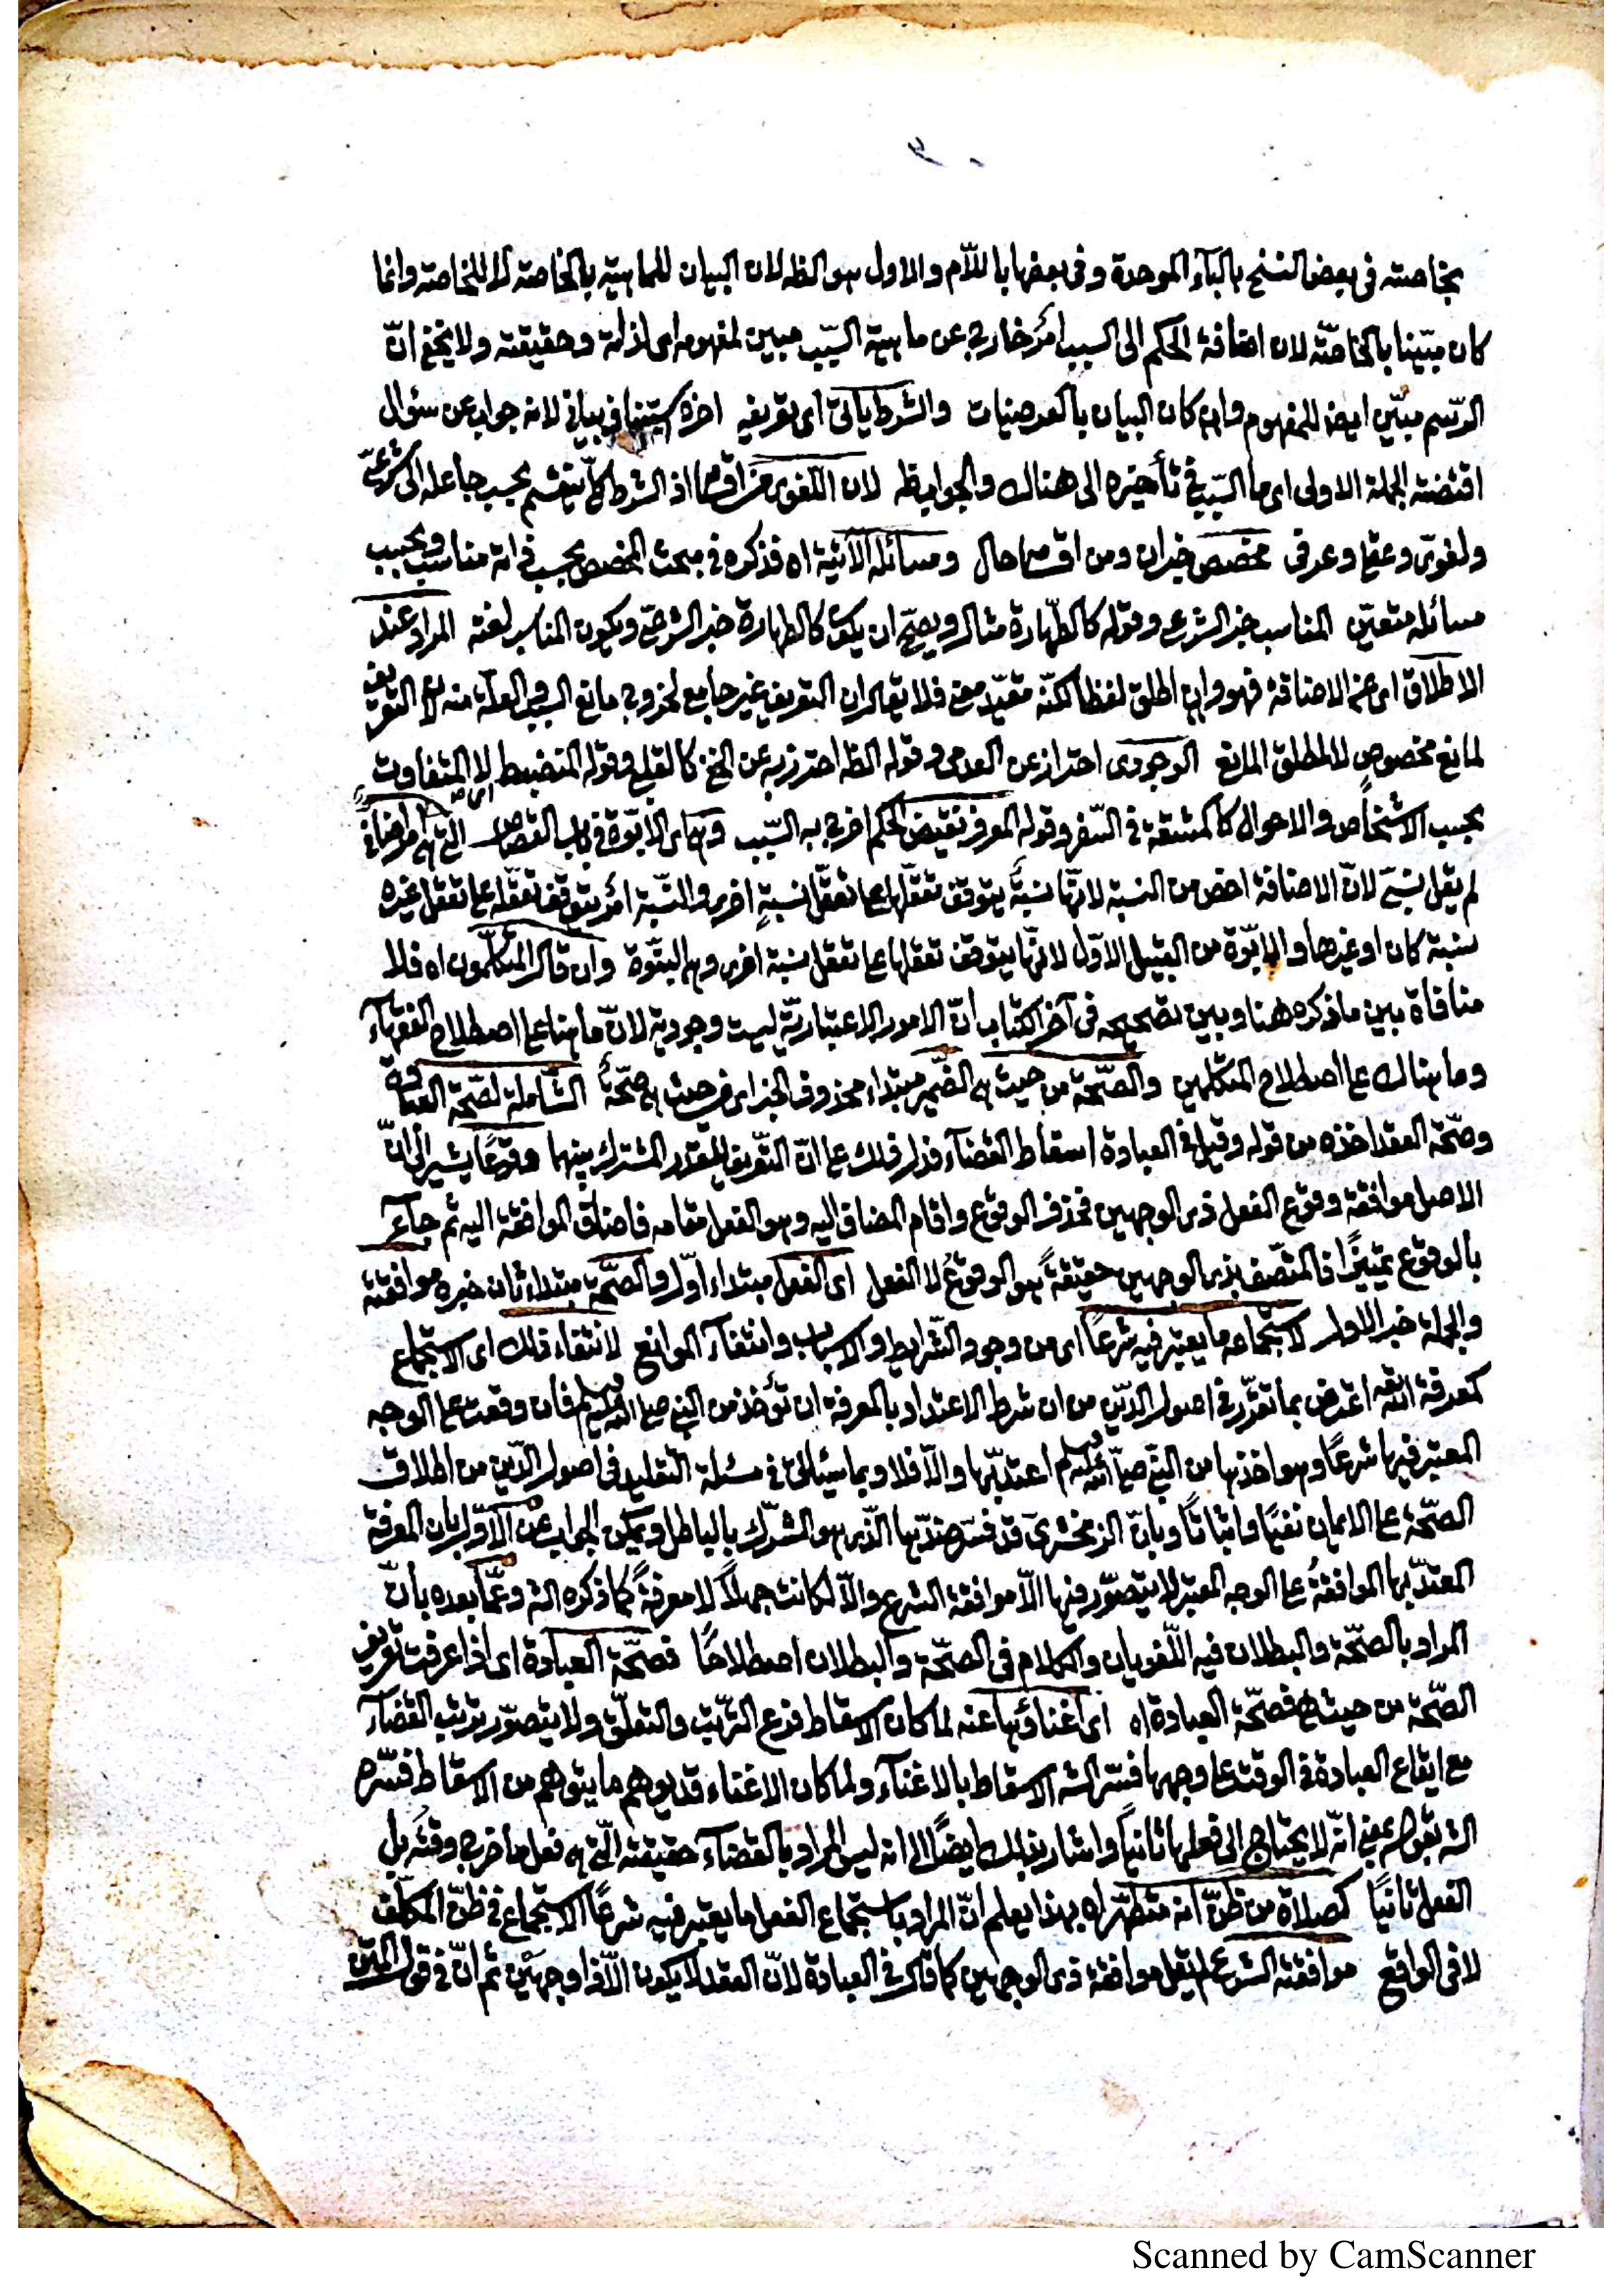 بخاصته فى بعض النسخ بالبآء الموحدة وفى بعضها باللّام والاول هو الظ لان البيان للماهية بالخاصته لا للخاصته وانما
كان مبيّنا بالخاصّة لان اضافة الحكم الى السبب امر خارج عن ماهية السّبب مبين لمفهومه اى لذاته وحقيقته ولا يخفى انّ
الرّسم مبيّن ايض للمفهوم وان كان البيان بالعرضيات والشرط يأتى اى تعريفه اخره استينا فى بيانى لانه جواب عن سئوال
اقتضته الجملة الاولى اى ما السّبب فى تأخيره الى هناك والجواب ظ لان اللغوى من اقسامه اذ الشرط كلّا ينقسم بحسب جاعله الى شرعىّ
ولغوىّ وعقلى وعرفى مخصص خبر ان ومن اقسامه حال ومسائله الآتية اه فذكره فى مبحث المخصص بحسب ذاته مناسب وبحسب
مسائله متعيّن المناسب خبر الشرعى وقوله كالطّهارة مثال ويصحّ ان يكون كالطهارة خبر الشرعىّ ويكون المناسب لغته المراد عند
الاطلاق اى عن الاضافة فهو وان اطلق لفظا لكنّه مقيّد معنى فلا يقال ان التعريف غير جامع لخروج مانع السبب والعلّة منه لانّ التعريف
لمانع مخصوص لا لمطلق المانع الوجودى احتراز عن العدمى وقوله الظ احترز به عن الخفى كالقلع وقوله المنضبط لا المتفاوت
بحسب الاشخاص والاحوال كالمشقة فى السّفر وقوله المعرف نقيض الحكم اخرج به السّبب وهى اى الابوّة فى باب القصاص التى هى امر اضافىّ
لم يقل نسبىّ لانّ الاضافة اخص من النسبة لانّها نسبةٌ يتوقف تعقّلها على تعقّل نسبةٍ اخرى والنّسبة امر يتوقف تعقّله على تعقل غيره
نسبة كان او غيرها والابوّة من القبيل الاوّل لانّها يتوقف تعقلها على تعقل نسبة اخرى وهى البنوّة وان قال المتكلّمون اه فلا
منافاة بين ما ذكره هنا وبين تصحيحه فى آخر الكتاب انّ الامور الاعتباريّة ليست وجودية لانّ ما هنا على اصطلاح الفقهآء
وما هناك على اصطلاح المتكلمين والصّحة من حيث هى الضّمير مبتداء محذوف الخبر اى من حيث هى صحّةٌ الشّاملة لصّحة العبادة
وصحّة العقد اخذه من قوله وقيل فى العبادة اسقاط القضآء فدل ذلك على انّ التّعريف للقدر المشترك بينهما وقوعًا يشير الى انّ
الاصل موافقة وقوع الفعل ذى الوجهين فحذف الوقوع واقام المضاف اليه وهو الفعل مقامه فاضاف الموافقة اليه ثم جآء
بالوقوع تمييزًا فالمتّصف بذى الوجهين حقيقةً هو الوقوع لا الفعل اى الفعل مبتداء اوّل والصّحة مبتداء ثان خبره موافقته
والجملة خبر الاول لاستجماعه ما يعتبر فيه شرعاً اى من وجود الشّرايط والاسباب وانتفآء الموانع لانتفاء ذلك اى الاستجماع
كمعرفة اللّه اعترض بما تقرّر فى اصول الدّين من ان شرط الاعتداد بالمعرفة ان تؤخذ من النبى صلى اللّه عليه وسلم فان وقعت على الوجه
المعتبر فيها شرعًا وهو اخذها من النبى صلى اللّه عليه وسلم اعتدّ بها والاّ فلا وبما سيأتى فى مسئلة التقليد فى اصول الدّين من اطلاق
الصّحة على الايمان نفيًا واثباتاً وبانّ الزمخشرىّ قد فسّر ضدّها الذى هو الشّرك بالباطل ويمكن الجواب عن الاوّل بان المعرفة
المعتدّ بها الموافقة على الوجه المعتبر لا يتصوّر فيها الاّ موافقة الشرع والاّ لكانت جهلاً لا معرفةً كما ذكره الشّ وعمّا بعده بأنّ
المراد بالصّحّة والبطلان فيه اللّغويان والكلام فى الصّحّة والبطلان اصطلاحًا فصحّة العبادة اى اذا عرفت تعريف
الصّحّة من حيث هى فصحّة العبادة اه اى اغناؤها عنه لما كان الاسقاط فرع الترّتب والتعلّق ولا يتصوّر ترتب القضآء
مع ايقاع العبادة فى الوقت على وجهها فسّر الشّ الاسقاط بالاغنآء ولما كان الاغناء قد يوهم ما يتوهم من الاسقاط فسّره
الشّ بقوله بمعنى انّه لا يحتاج الى فعلها ثانياً واشار بذلك ايضًا الى انه ليس المراد بالقضآء حقيقته الّتى هى فعل ما خرج وقته بل
الفعل ثانيًا كصلاة من ظنّ انه متطهّر اه بهذا يعلم انّ المراد باستجماع الفعل ما يعتبر فيه شرعاً الاستجماع فى ظنّ المكلّف
لا فى الواقع موافقته الشرع لم يقل موافقة ذى الوجهين كما قال فى العبادة لانّ العقد لا يكون الاّ ذا وجهين ثم انّ فى قول المتن
Scanned by CamScanner